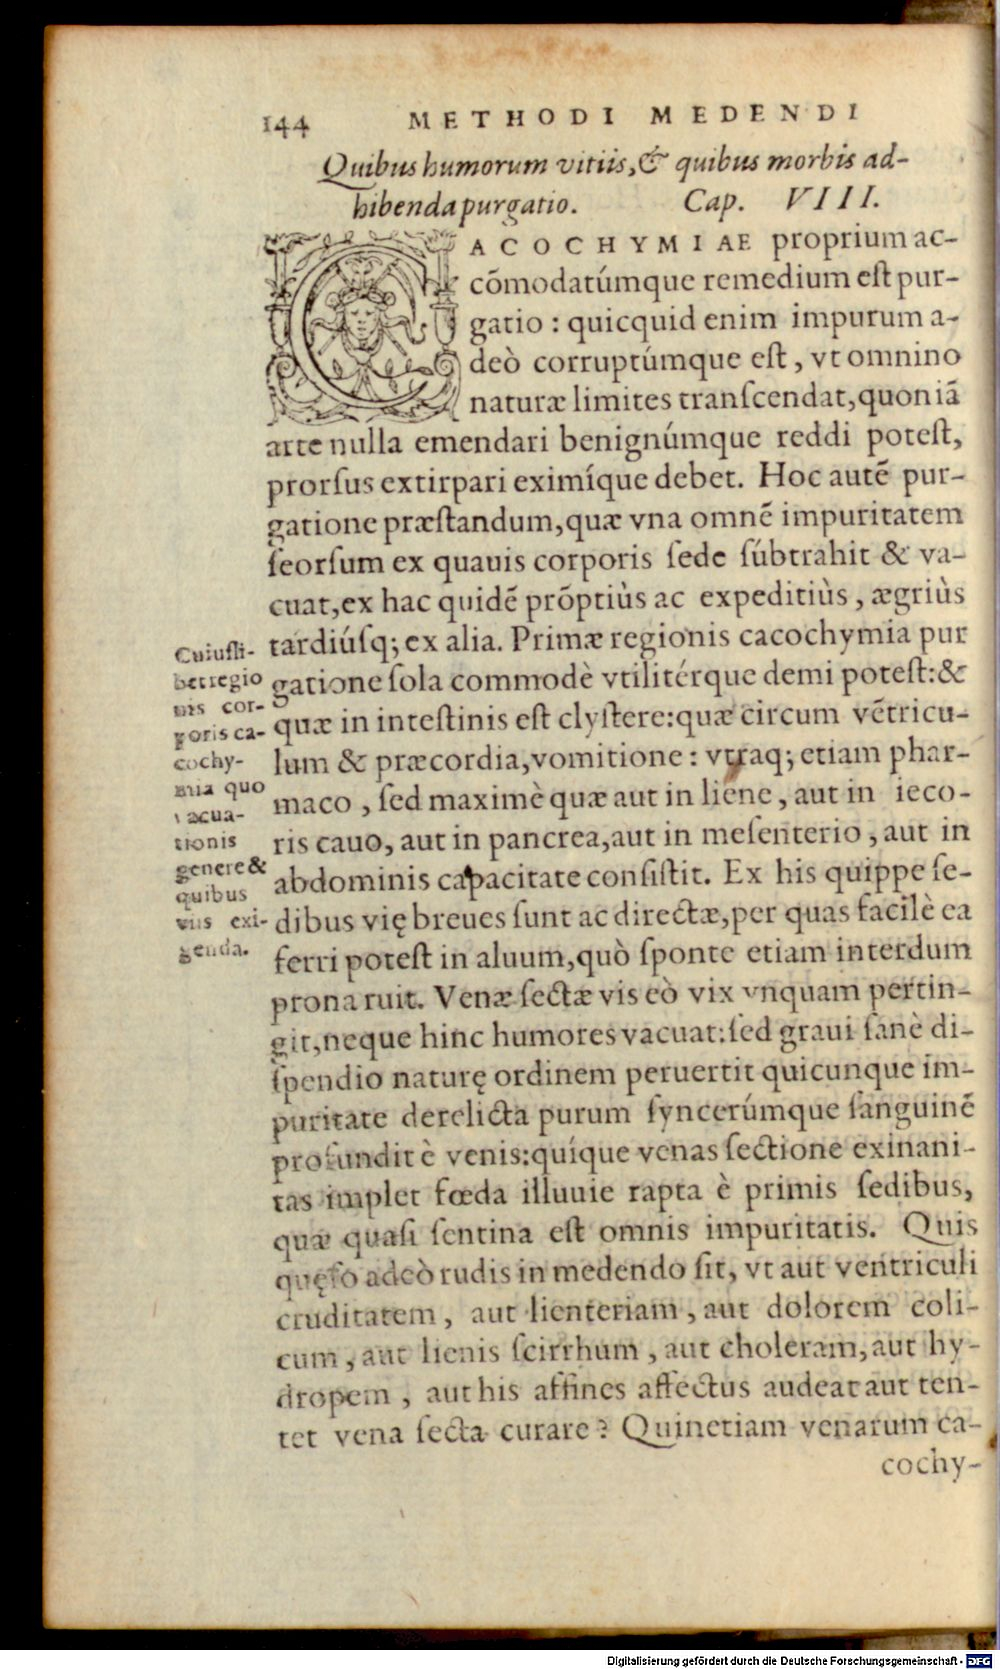 144 METHODI MEDENDI
Quibus humorum vitiis, & quibus morbis ad-
hibenda purgatio. Cap. VIII.
CACOCHYMIAE proprium ac-
cōmodatúmque remedium eſt pur-
gatio : quicquid enim impurum a-
deò corruptúmque eſt, vt omnino
naturæ limites tranſcendat, quoniā
arte nulla emendari benignúmque reddi poteſt,
prorſus extirpari eximíque debet. Hoc autē pur-
gatione præſtandum, quæ vna omnē impuritatem
ſeorſum ex quauis corporis ſede ſúbtrahit & va-
cuat, ex hac quidē prōptiùs ac expeditiùs, ægriùs
tardiúſq; ex alia. Primæ regionis cacochymia pur
gatione ſola commodè vtilitérque demi poteſt: &
quæ in inteſtinis eſt clyſtere: quæ circum vētricu-
lum & præcordia, vomitione : vtraq; etiam phar-
maco, ſed maximè quæ aut in liene, aut in ieco-
ris cauo, aut in pancrea, aut in meſenterio, aut in
abdominis capacitate conſiſtit. Ex his quippe ſe-
dibus vię breues ſunt ac directæ, per quas facilè ea
ferri poteſt in aluum, quò ſponte etiam interdum
prona ruit. Venæ ſectæ vis eò vix vnquam pertin-
git, neque hinc humores vacuat: ſed graui ſanè di-
ſpendio naturę ordinem peruertit quicunque im-
puritate derelicta purum ſyncerúmque ſanguinē
profundit è venis: quíque venas ſectione exinani-
tas implet fœda illuuie rapta è primis ſedibus,
quæ quaſi ſentina eſt omnis impuritatis. Quis
quęſo adeò rudis in medendo ſit, vt aut ventriculi
cruditatem, aut lienteriam, aut dolorem coli-
cum, aut lienis ſcirrhum, aut choleram, aut hy-
dropem, aut his affines affectus audeat aut ten-
tet vena ſecta curare? Quinetiam venarum ca-
cochy-
Cuiuſli-
bet regio
nis cor-
poris ca-
cochy-
mia quo
vacua-
tionis
genere &
quibus
viis exi-
genda.
Digitalisierung gefördert durch die Deutsche Forschungsgemeinschaft - DFG